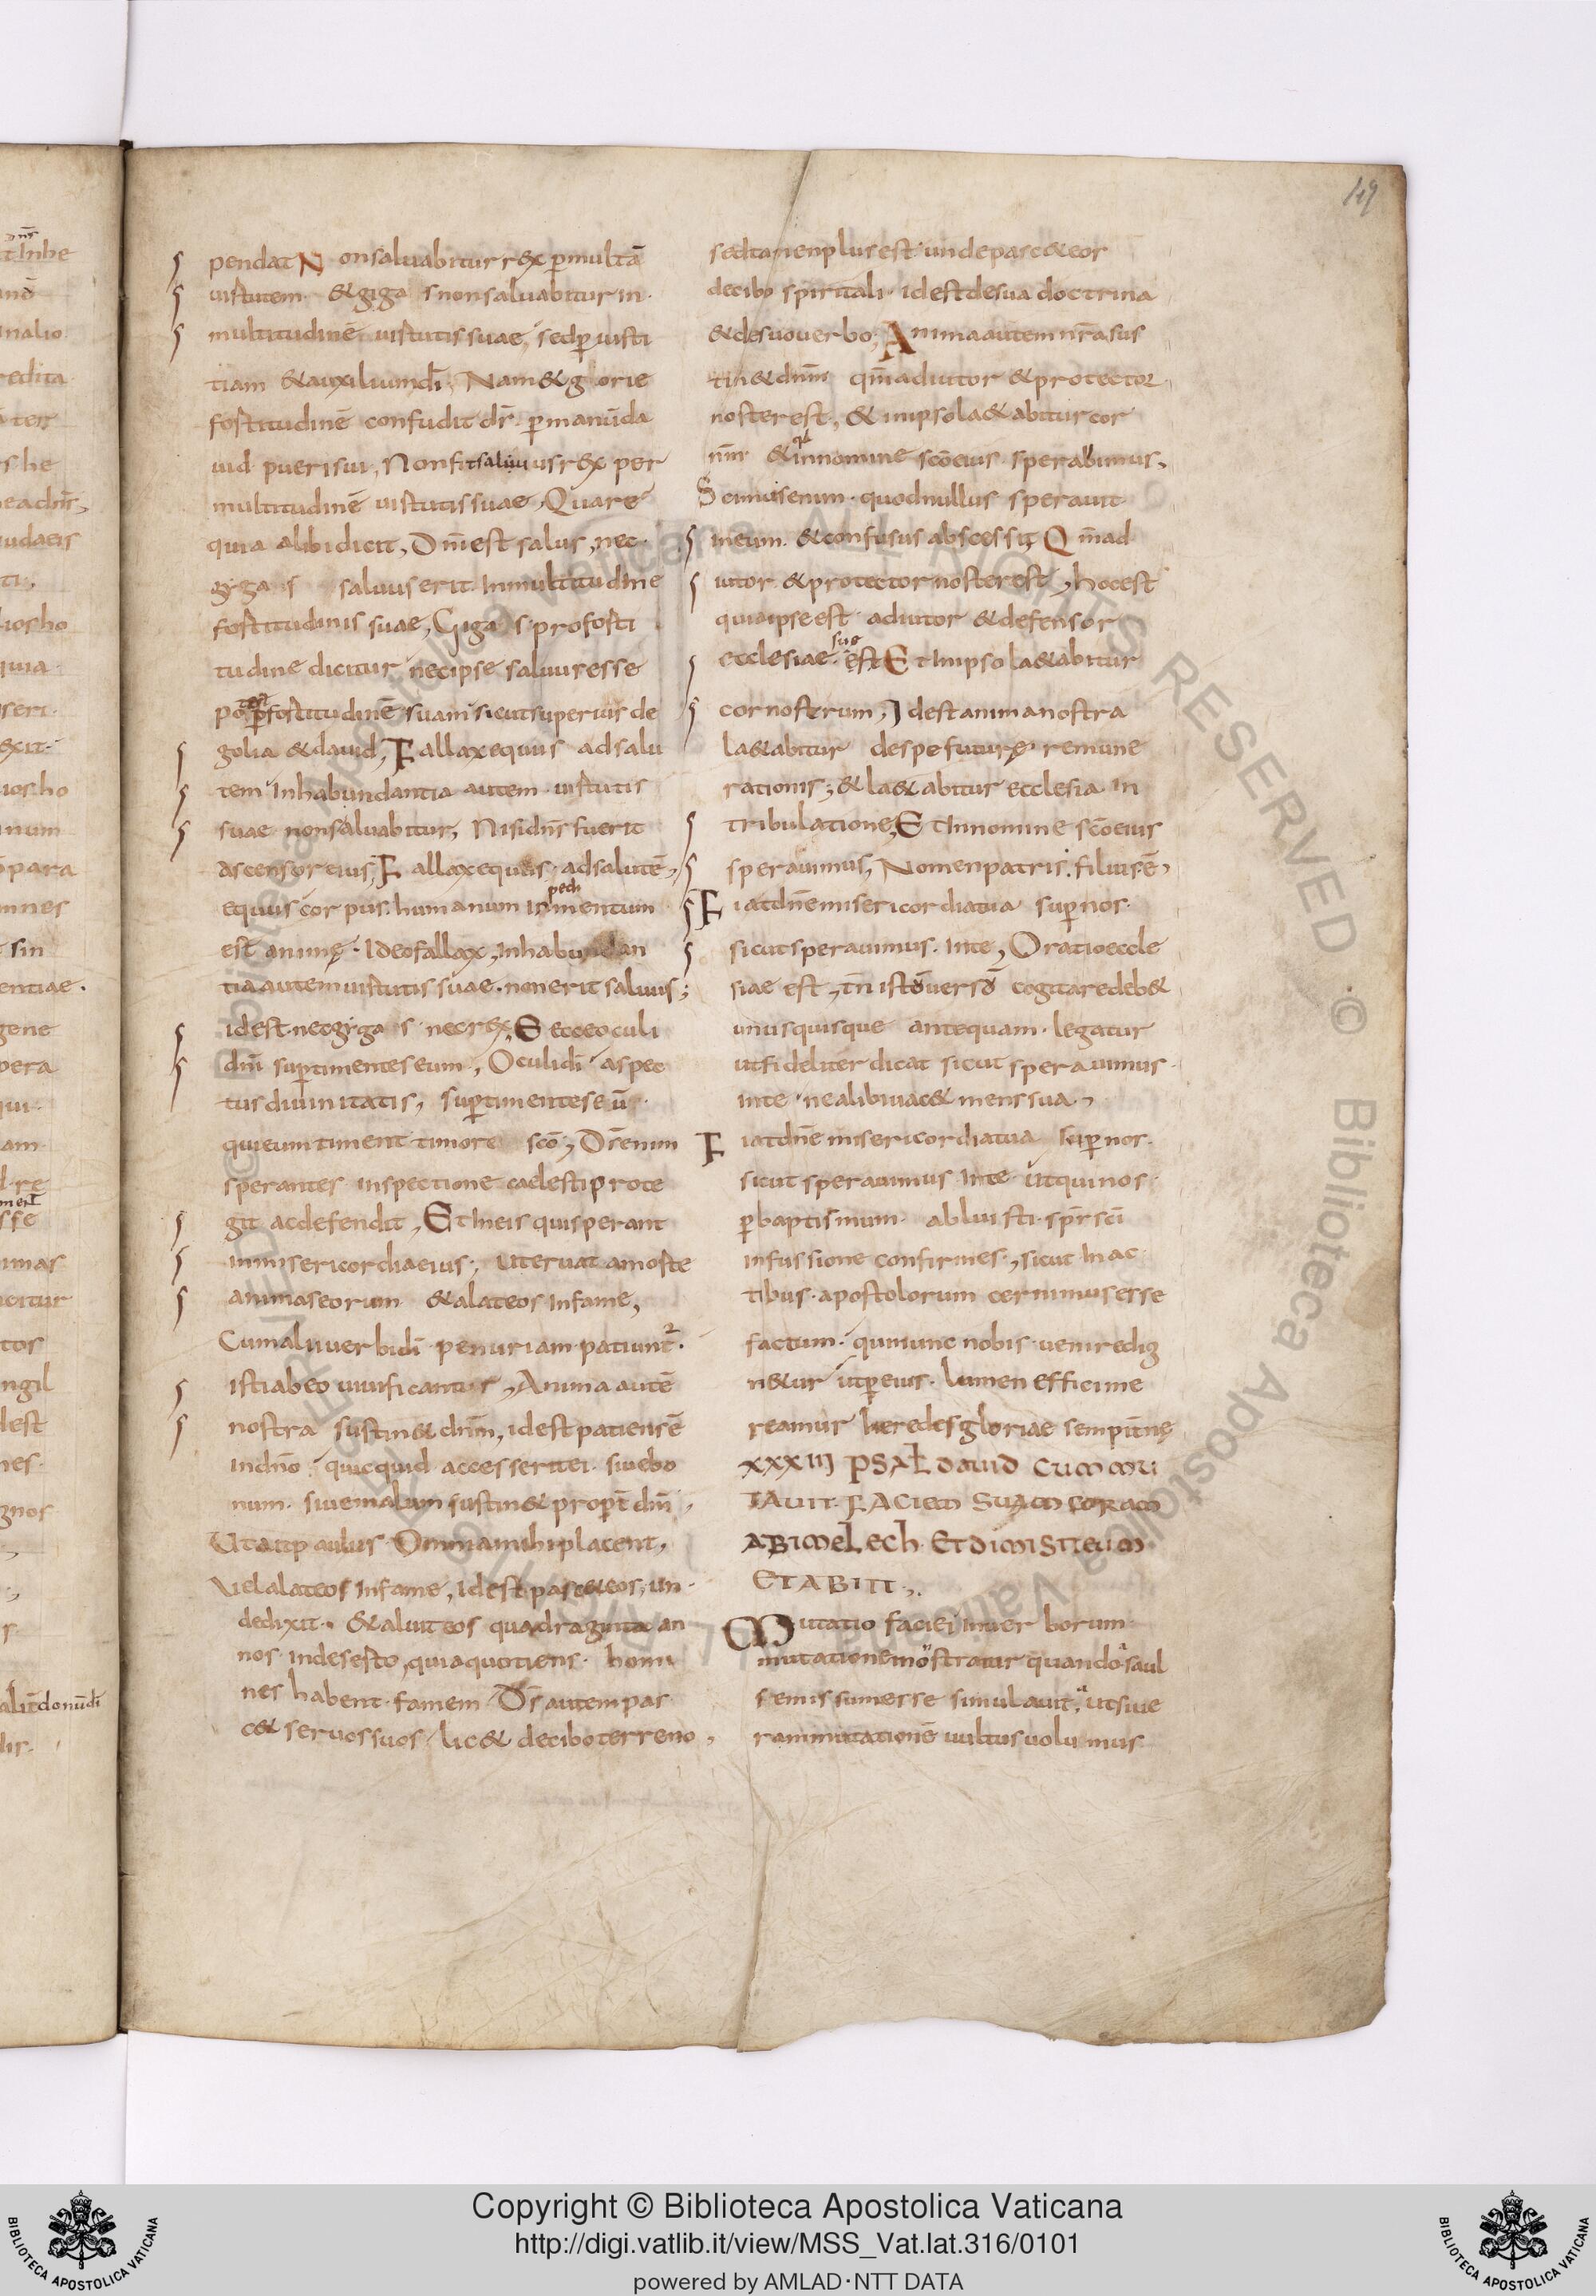 49
pendat Non saluabitur rex p multā
uirtutem · & gigas non saluabitur in ·
multitudinē uirtutis suae, sed p iusti
tiam & auxilium dī, Nam & glorie
fortitudinē confudit ds̄ · p manū da
uid pueri sui, Non fit saluus rex per
multitudinē uirtutis suae, Quare
quia alibi dicit, Dn̄i est salus, nec ·
gigas saluus erit In multitudine
fortitudinis suae, Gigas · pro forti
tudine dicitur nec ipse saluus esse
potest p fortitudinē suam sicut superius de
golia & dauid, Fallax equus ad salu
tem In habundantia autem · uirtutis
suae non saluabitur, Nisi dn̄s fuerit
ascensor eius, Fallax equus · ad salutē,
equus corpus humanum
est animę · Ideo fallax, In habundan
tia autem uirtutis suae · non erit saluus;
id est nec gigas · nec rex, Ecce oculi
dn̄i sup timentes eum, Oculi dī aspec
tus diuinitatis, sup timentes eū ·
qui eum timent timore scō, Ds̄ enim
sperantes inspectione caelesti prote
git ac defendit, Et In eis qui sperant
in misericordia eius, Ut eruat a morte
animas eorum & alat eos In fame,
Cum alii uerbi dī penuriam patiunt ·
isti ab eo uiuificantur, Anima autē
nostra sustin& dn̄m, id est patiens ē
in dn̄o · quicquid accesserit ei · siue bo
num · siue malum sustin& propt dn̄m,
Ut ait paulus · Omnia mihi placent,
Vel alat eos In fame, id est pasc& eos, un ·
de dixit · & aluit eos quadraginta an
nos · in deserto, quia quotiens · homi
nes habent · famem Ds̄ autem pas
c& seruos suos / lic& de cibo terreno,
sed tamen plus est unde pasc& eos
de cibo spiritali · id est de sua doctrina
& de suo uerbo; Anima autem nr̄a sus
tin& dn̄m qm̄ adiutor & protector
noster est, & in ipso la&abitur cor
nr̄m & in nomine scō eius sperabimus,
Scimus enim · quod nullus sperauit
in eum · & confusus abscessit, Qm̄ ad
iutor & protector noster est, hoc est
quia ipse est adiutor & defensor
ecclesiae · suę est Et In ipso la&abitur
cor nostrum, Id est anima nostra
la&abitur de spe futurę remune
rationis; & la&abitur ecclesia In
tribulatione, Et In nomine scō eius
sperauimus, Nomen patris · filius ē,
Fiat dn̄e misericordia tua sup nos ·
sicut sperauimus · In te, Oratio eccle
siae est, In istō uersō cogitare deb&
unusquisque antequam · legatur
ut fideliter dicat sicut sperauimus ·
in te · ne alibi uac& mens sua ·,
Fiat dn̄e misericordia tua sup nos ·
sicut sperauimus In te · ut qui nos ·
p baptismum · abluisti · sps̄ scī
infussione confirmes ·, sicut In ac
tibus · apostolorum cernimus esse
factum · qui nunc nobis · uenire dig
n&ur ut p eius · lumen effici me
reamur heredes gloriae sempitnę
XXXIII PSAL DAVID CUM MU
TAUIT · FACIEM SUAM CORAM
ABIMELECH · ET DIMISIT EUM
ET ABIIT ·,
Mutatio faciei in uerborum ·
mutatione mōstratur quando saul
se missum esse simulauit, ut si ue
ram mutationē uultus uolumus
Copyright © Biblioteca Apostolica Vaticana
http://digi.vatlib.it/view/MSS_Vat.lat.316/0101
powered by AMLAD·NTT DATA
BIBLIOTECA APOSTOLICA VATICANA
BIBLIOTECA APOSTOLICA VATICANA